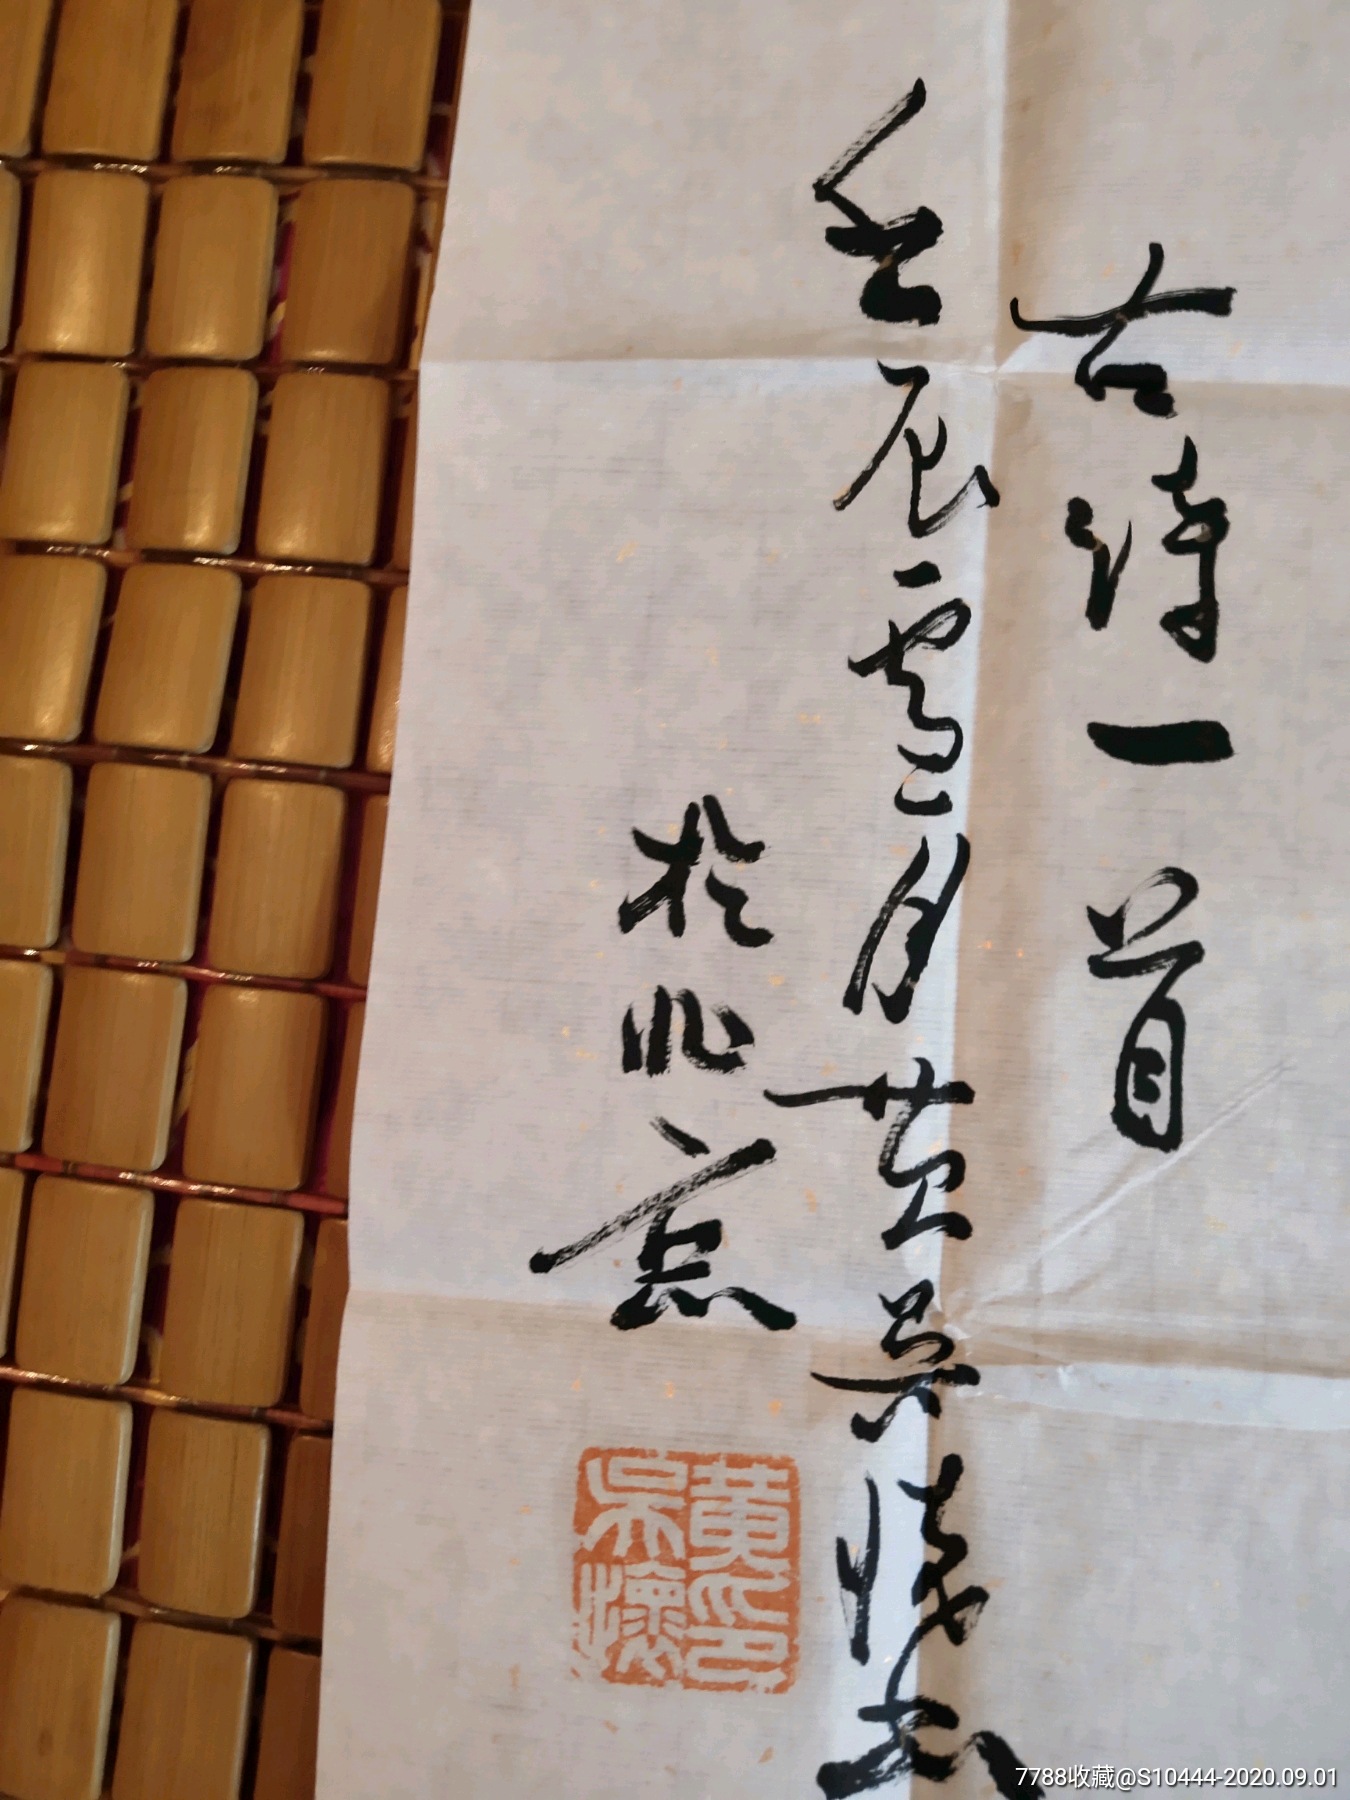 古诗一首
壬辰雪月黄吴懷书
於北京
黄印吴懷
7788收藏@S10444-2020.09.01